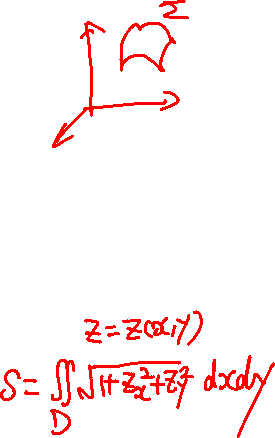 Σ
z = z(x,y)
S = ∬_D √(1+z_x²+z_y²) dxdy